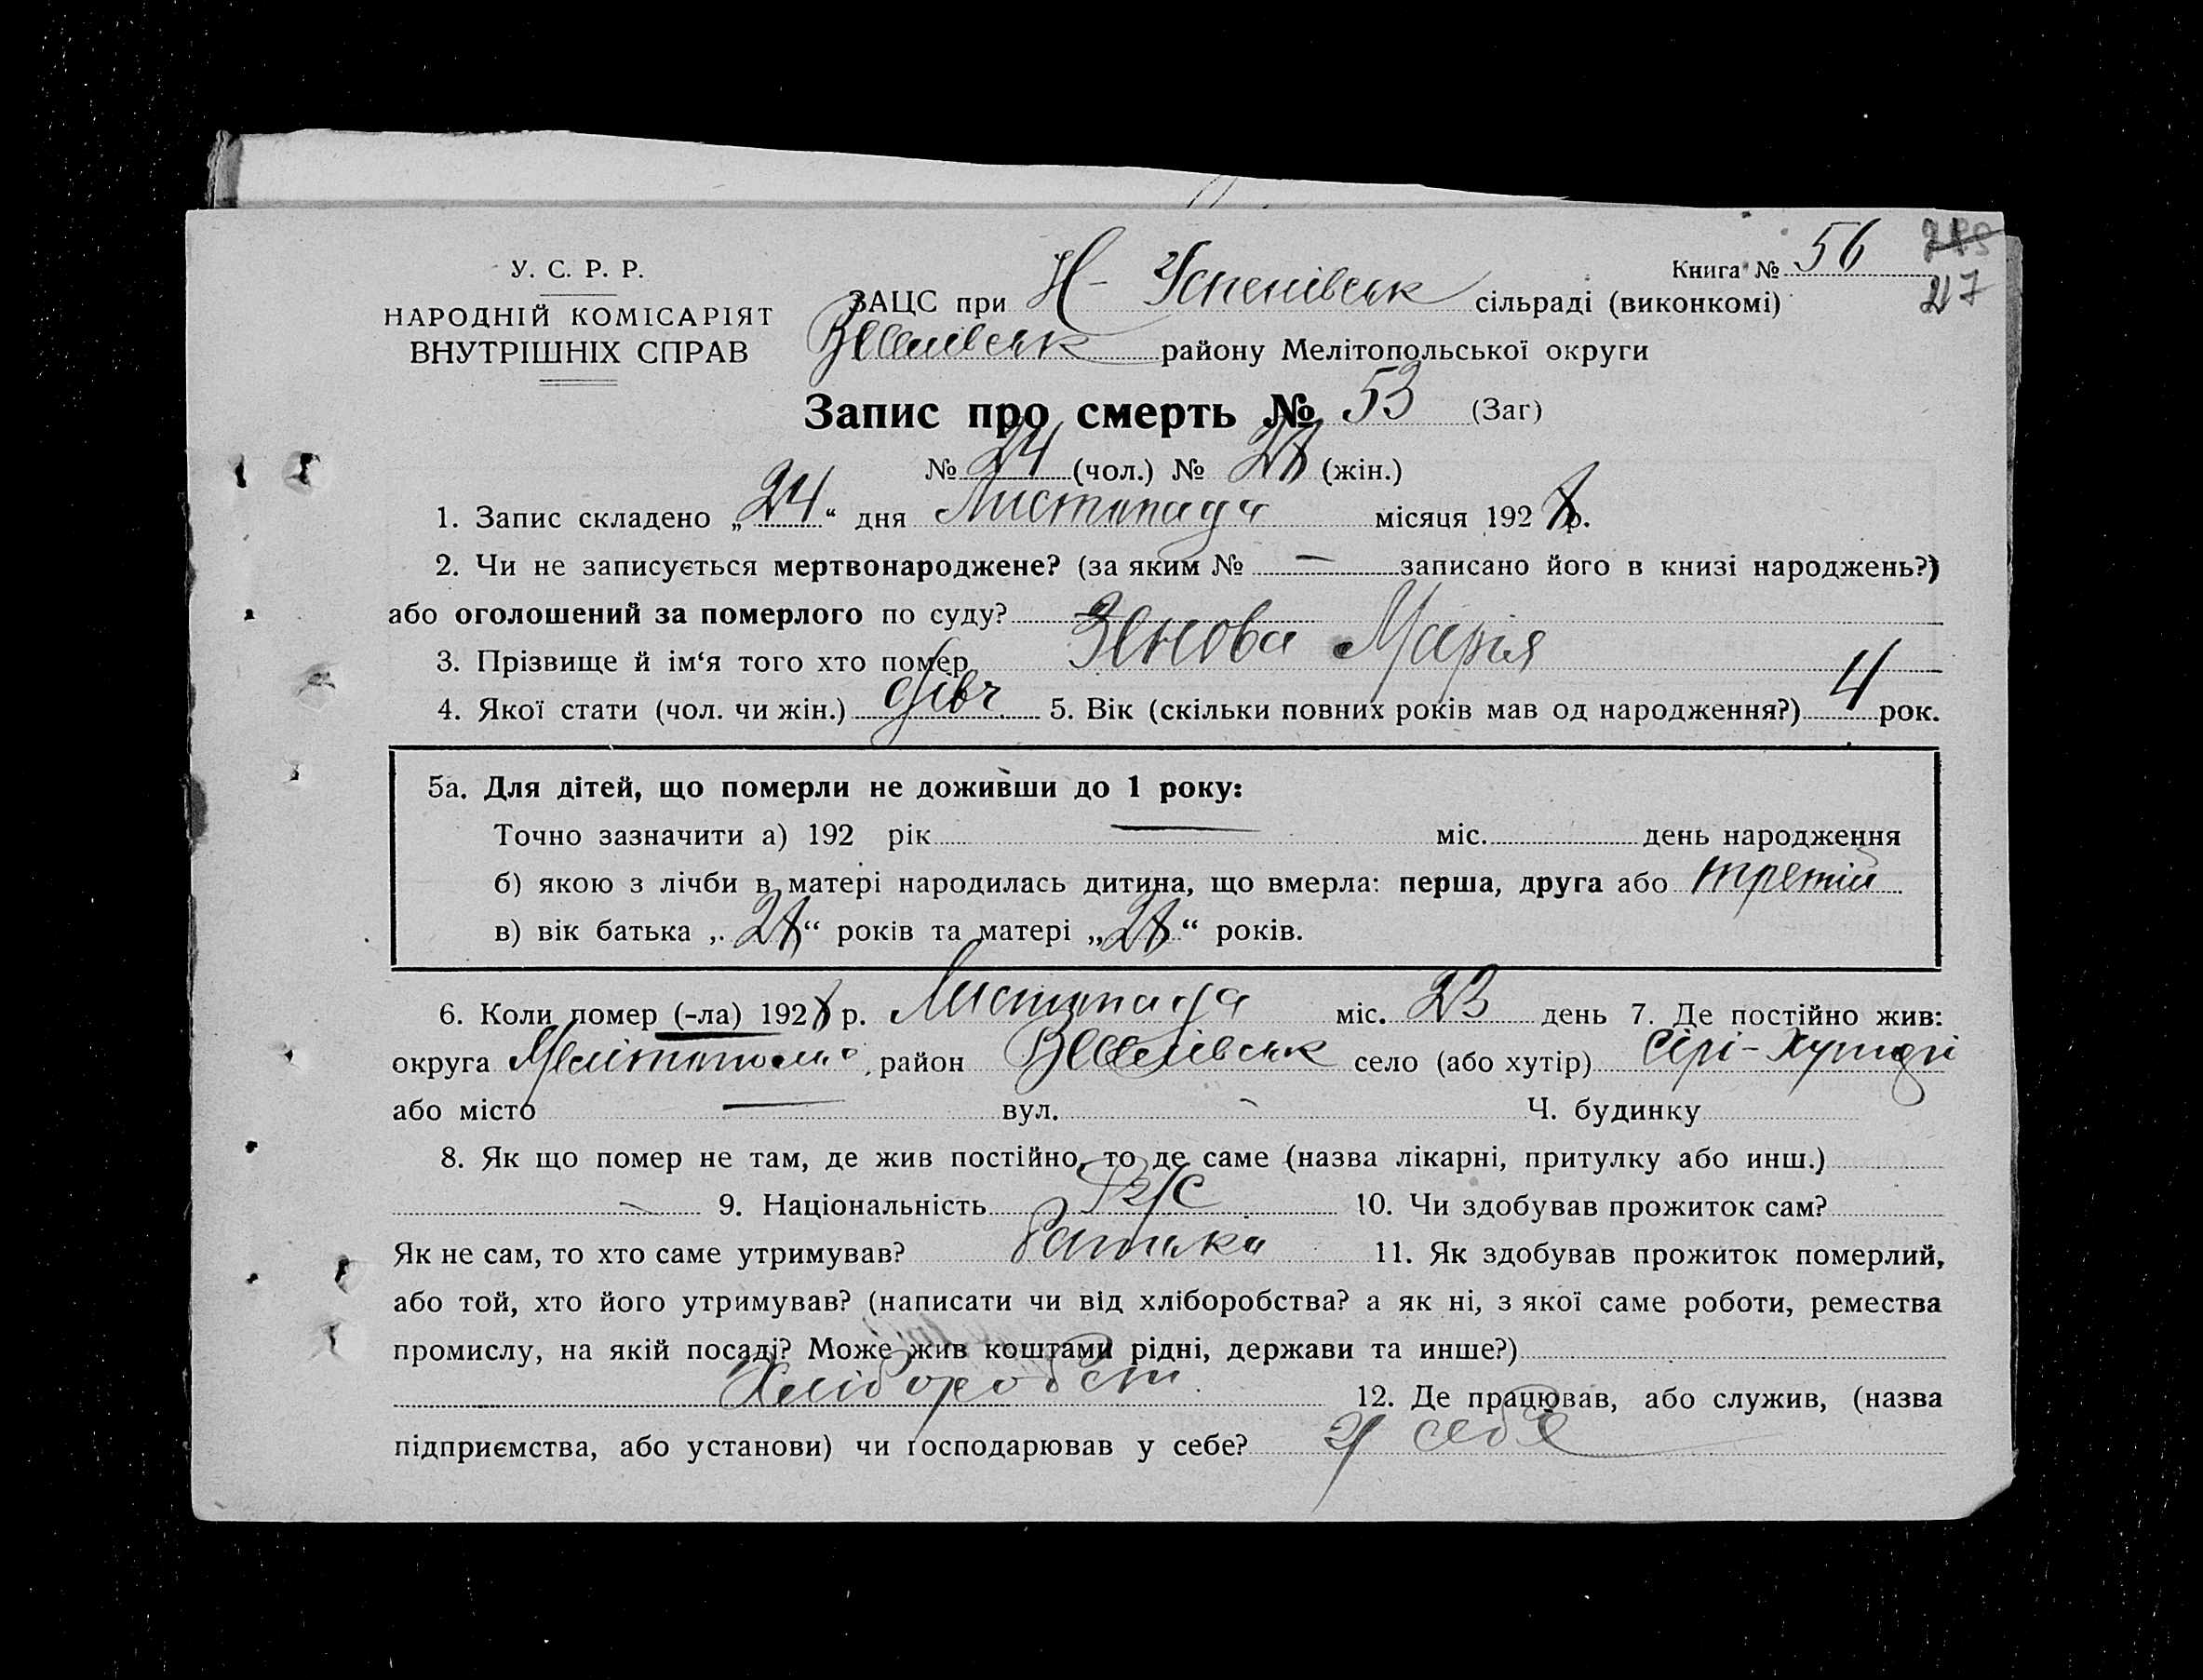 Книга № 56
У. С. Р. Р.
НАРОДНІЙ КОМІСАРІЯТ
ВНУТРІШНІХ СПРАВ
27
ЗАЦС при Н-Успенівськ сільраді (виконкомі)
Веселівськ району Мелітопольської округи
Запис про смерть № 53 (Заг)
№ 24 (чол.) № 28 (жін.)
1. Запис складено „24“ дня Листопада місяця 1928 р.
2. Чи не записується мертвонароджене? (за яким № — записано його в книзі народжень?)
або оголошений за померлого по суду?
3. Прізвище й ім‘я того хто помер Зенова Марія
4. Якої стати (чол. чи жін.) дівч. 5. Вік (скільки повних років мав од народження?) 4 рок.
5а. Для дітей, що померли не доживши до 1 року:
Точно зазначити а) 192 рік — міс. день народження
б) якою з лічби в матері народилась дитина, що вмерла: перша, друга або третій
в) вік батька „28“ років та матері „28“ років.
6. Коли помер (-ла) 1928 р. Листопада міс. 23 день 7. Де постійно жив:
округа Мелітополь, район Веселівськ село (або хутір) Сірі-Хуторі
або місто — вул. - Ч. будинку
8. Як що помер не там, де жив постійно, то де саме (назва лікарні, притулку або инш.)
- 9. Національність Рус 10. Чи здобував прожиток сам?
Як не сам, то хто саме утримував? Батьки 11. Як здобував прожиток померлий,
або той, хто його утримував? (написати чи від хліборобства? а як ні, з якої саме роботи, ремества
промислу, на якій посаді? Може жив коштами рідні, держави та инше?)
Хліборобст. 12. Де працював, або служив, (назва
підприємства, або установи) чи господарював у себе? У себе